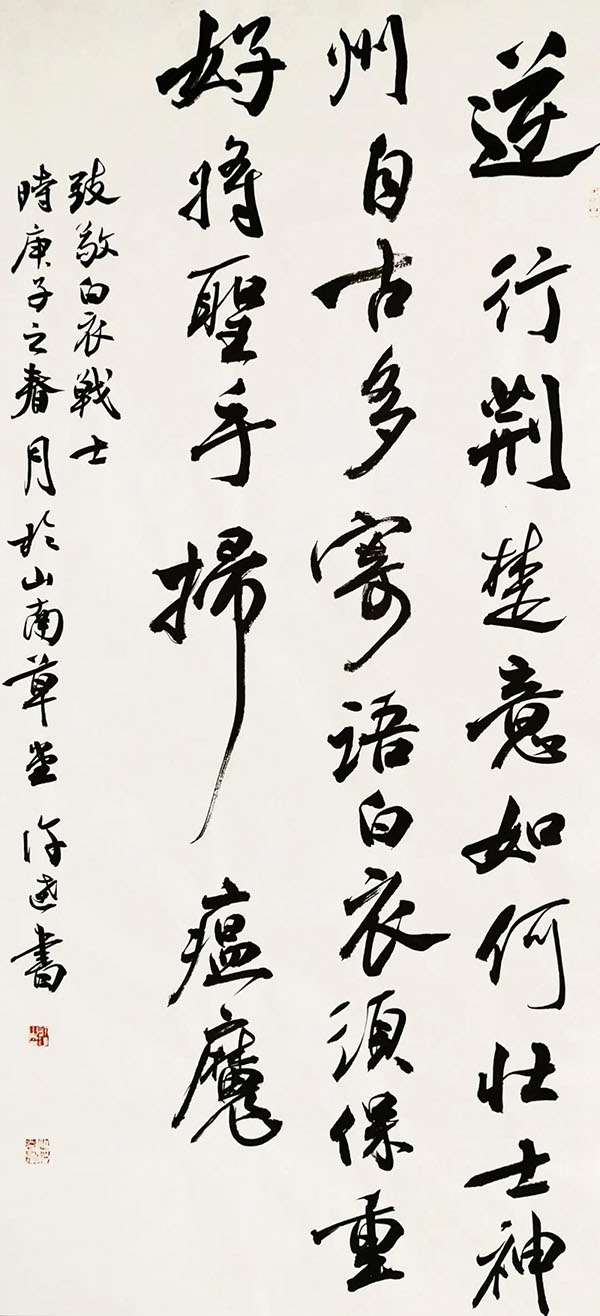 逆行荆楚意如何壮士神
州自古多寄语白衣须保重
好将聖手掃瘟魔
致敬白衣戰士
時庚子之春月於山南草堂